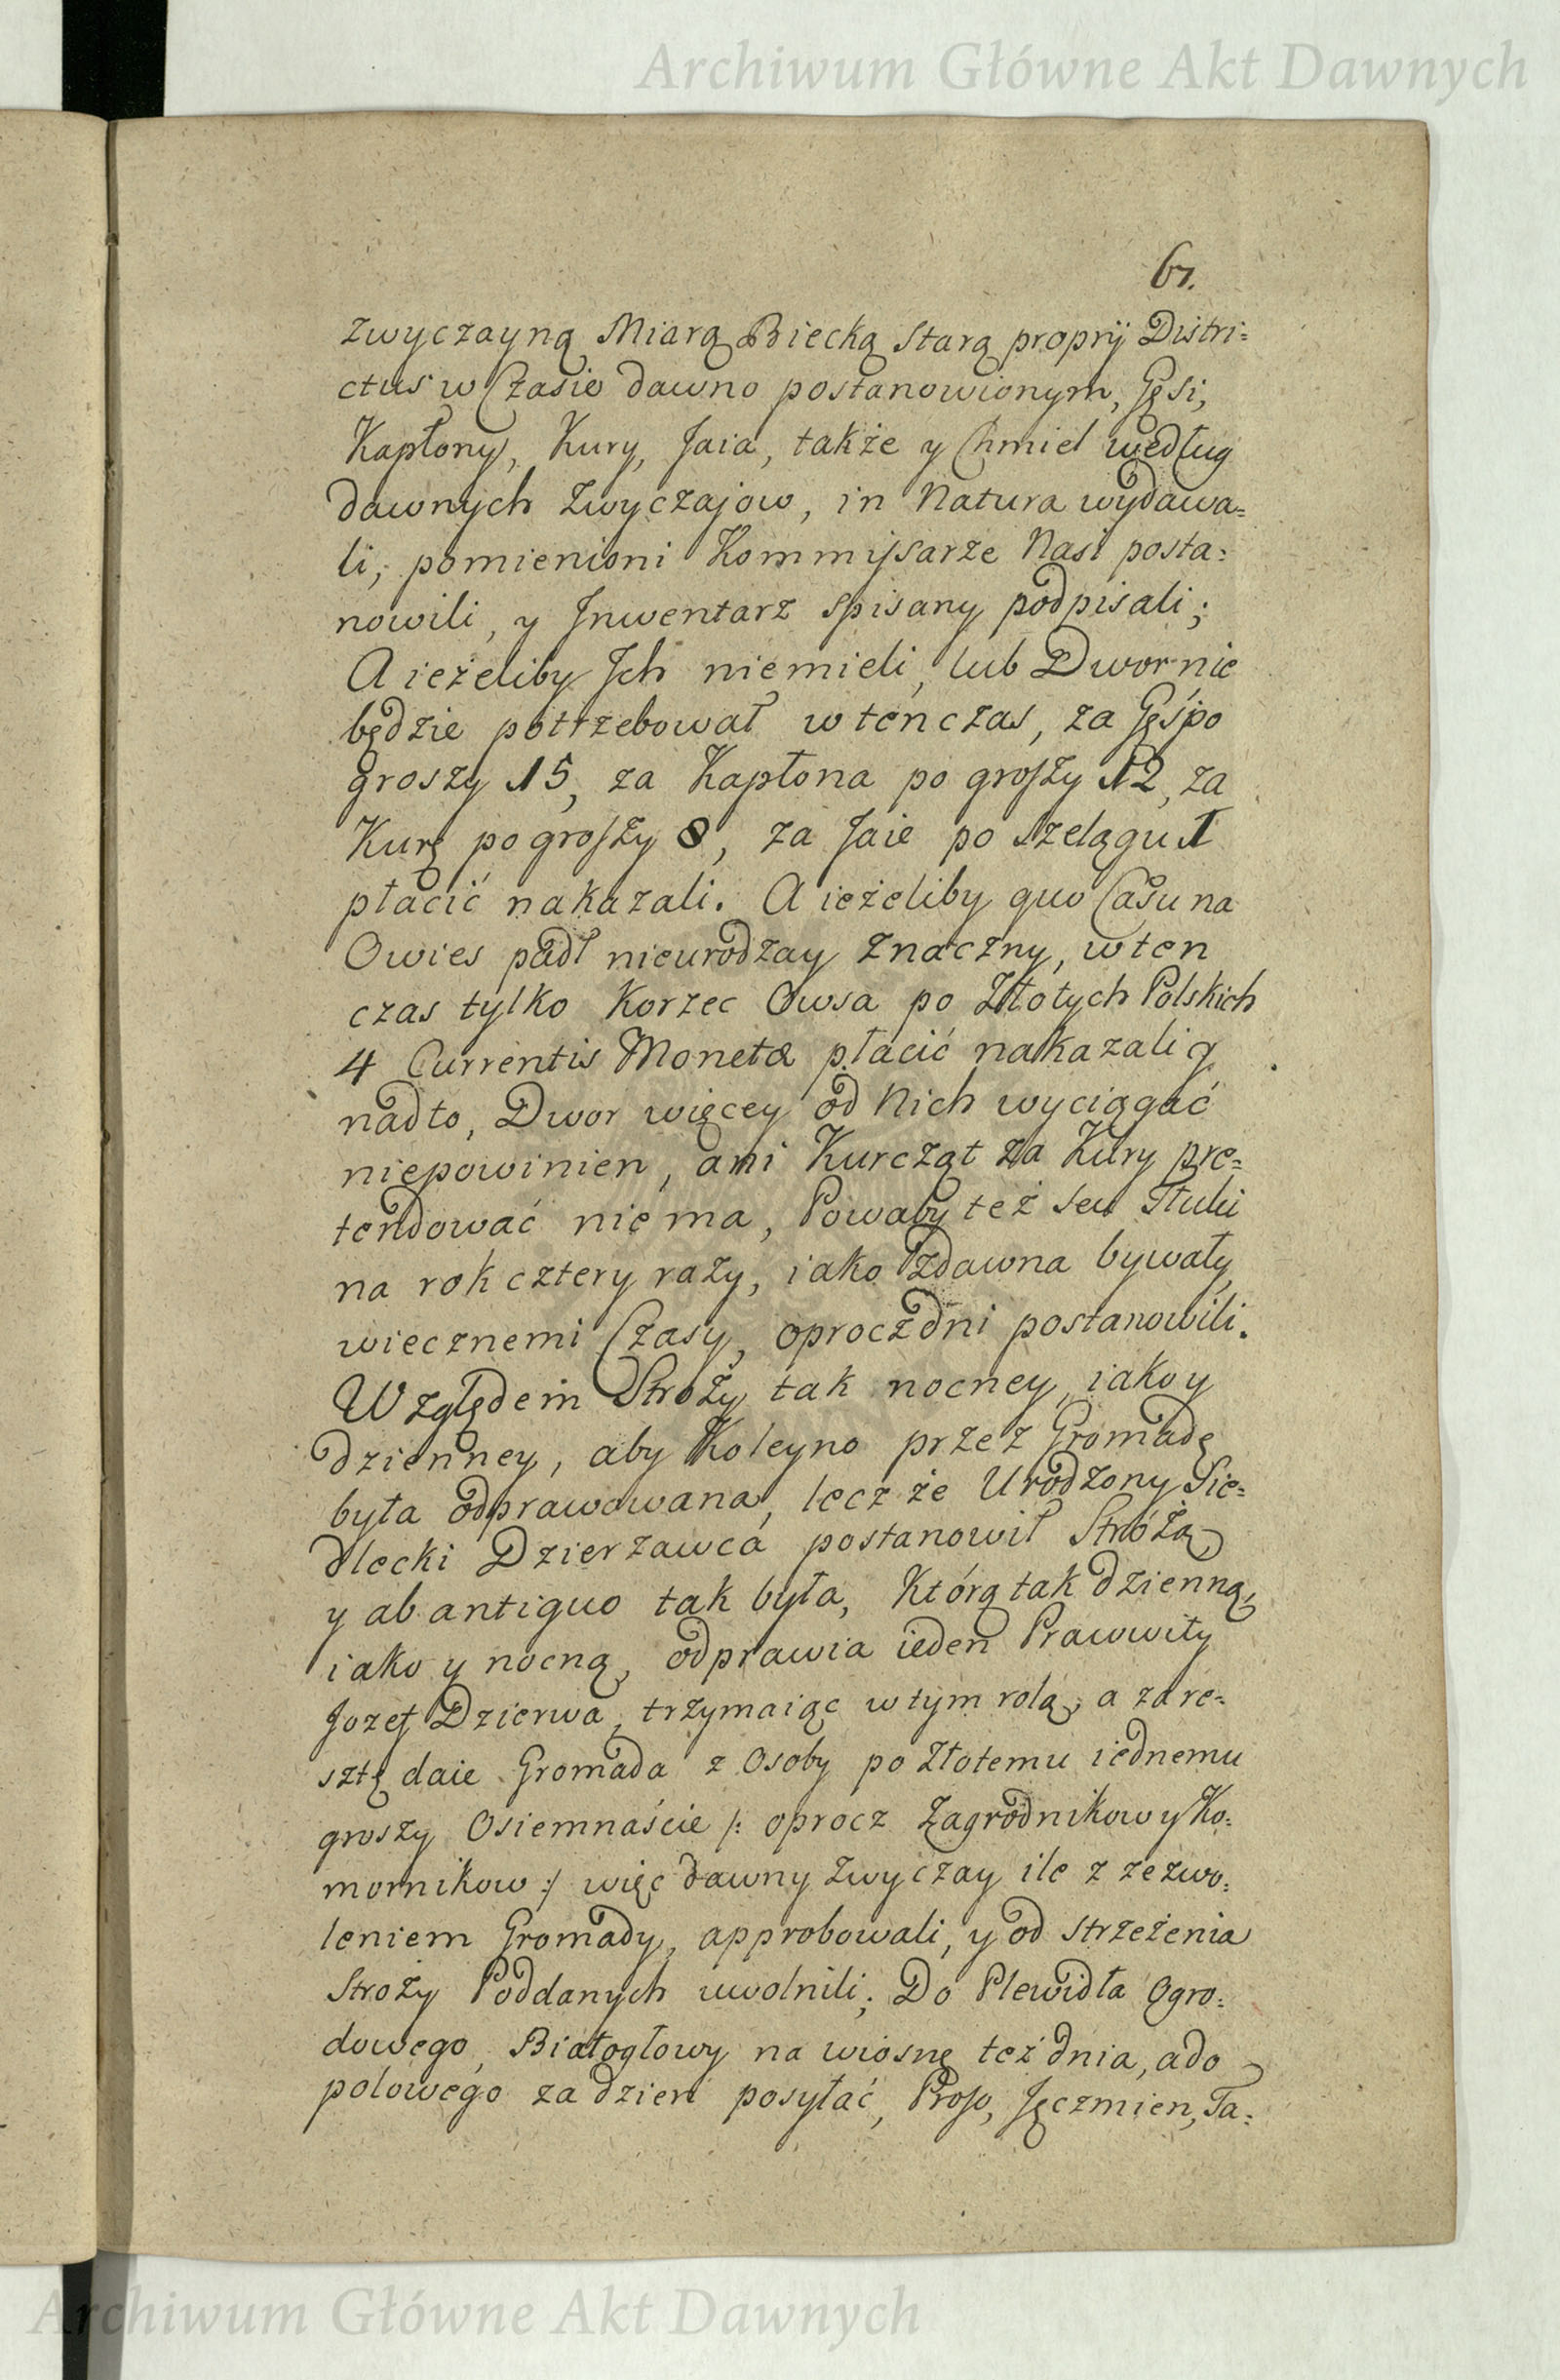 Archiwum Główne Akt Dawnych
61.
zwyczayną Miarą Biecką Starą proprij Distri=
ctus w Czasie dawno postanowionym, Gęsi,
Kapłony, Kury, Jaia, także y Chmiel według
dawnych Zwyczajow, in Natura wydawa=
li, pomienioni Kommissarze Nasi posta=
nowili, y Jnwentarz spisany podpisali;
A ieżeliby Jch niemieli, lub Dwor nie
będzie potrzebował w ten czas, za Gęś po
groszy 15, za Kapłona po groszy 12, za
Kurę po groszy 8, za Jaie po szelągu 1
płacić nakazali. A ieżeliby quo Casu na
Owies padł nieurodzay znaczny, w ten
czas tylko Korzec Owsa po Złotych Polskich
4 Currentis Monetæ płacić nakazali y
nadto, Dwor więcey od Nich wyciągać
niepowinien, ani Kurcząt za Kury pre=
tendować nie ma, Powaby też seu Tłuki
na rok cztery razy, iako zdawna bywały,
wiecznemi Czasy, oprocz dni postanowili.
Względem Stroży tak nocney, iako y
dzienney, aby Koleyno przez Gromadę
była odprawowana, lecz że Urodzony Sie=
dlecki Dzierzawca postanowił Stróżą,
y ab antiquo tak była, Którą tak dzienną,
iako y nocną, odprawia ieden Prawwity
Jozef Dzierwa, trzymaiąc w tym rolą, a za re=
sztę daie Gromada z Osoby po Złotemu iednemu
groszy Osiemnaście /: oprocz Zagrodnikow y Ko=
mornikow :/ więc dawny Zwyczay ile z zezwo=
leniem Gromady, approbowali, y od strzeżenia
Stroży Poddanych uwolnili; Do Plewidła Ogro=
dowego, Białogłowy na wiosnę też dnia, a do
polowego za dzień posyłać, Proso, Jęczmien, Ta=
Archiwum Główne Akt Dawnych